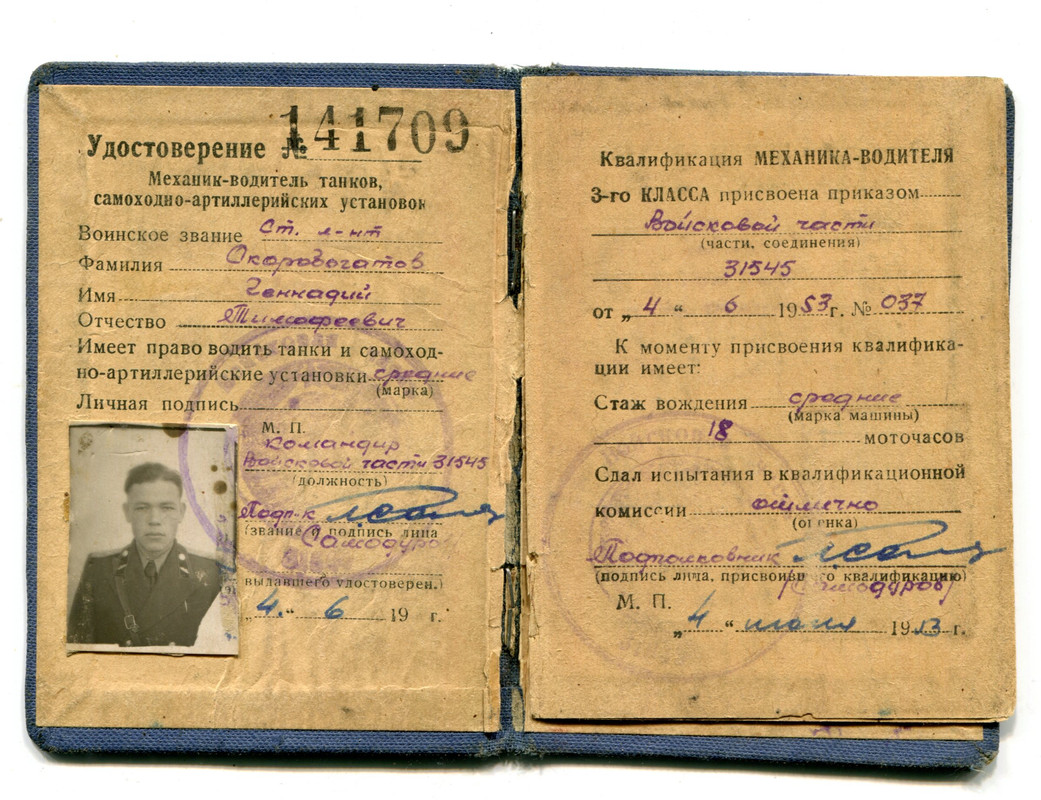 Удостоверение № 141709
Механик-водитель танков,
самоходно-артиллерийских установок
Воинское звание Ст. л-нт
Фамилия Скоробогатов
Имя Геннадий
Отчество Тимофеевич
Имеет право водить танки и самоход-
но-артиллерийские установки средние
(марка)
Личная подпись
М. П.
Командир
Войсковой части 31545
(должность)
Подп-к
(звание и подпись лица
Самодуров
выдавшего удостоверен.)
„4.“ 6 19 г.
Квалификация МЕХАНИКА-ВОДИТЕЛЯ
3-го КЛАССА присвоена приказом
Войсковой части
(части, соединения)
31545
от „4“ 6 1953г. № 037
К моменту присвоения квалифика-
ции имеет:
Стаж вождения средние
(марка машины)
18 моточасов
Сдал испытания в квалификационной
комиссии отлично
(оценка)
Подполковник
(подпись лица, присвоившего квалификацию)
(Самодуров)
М. П.
„4“ июня 1953 г.